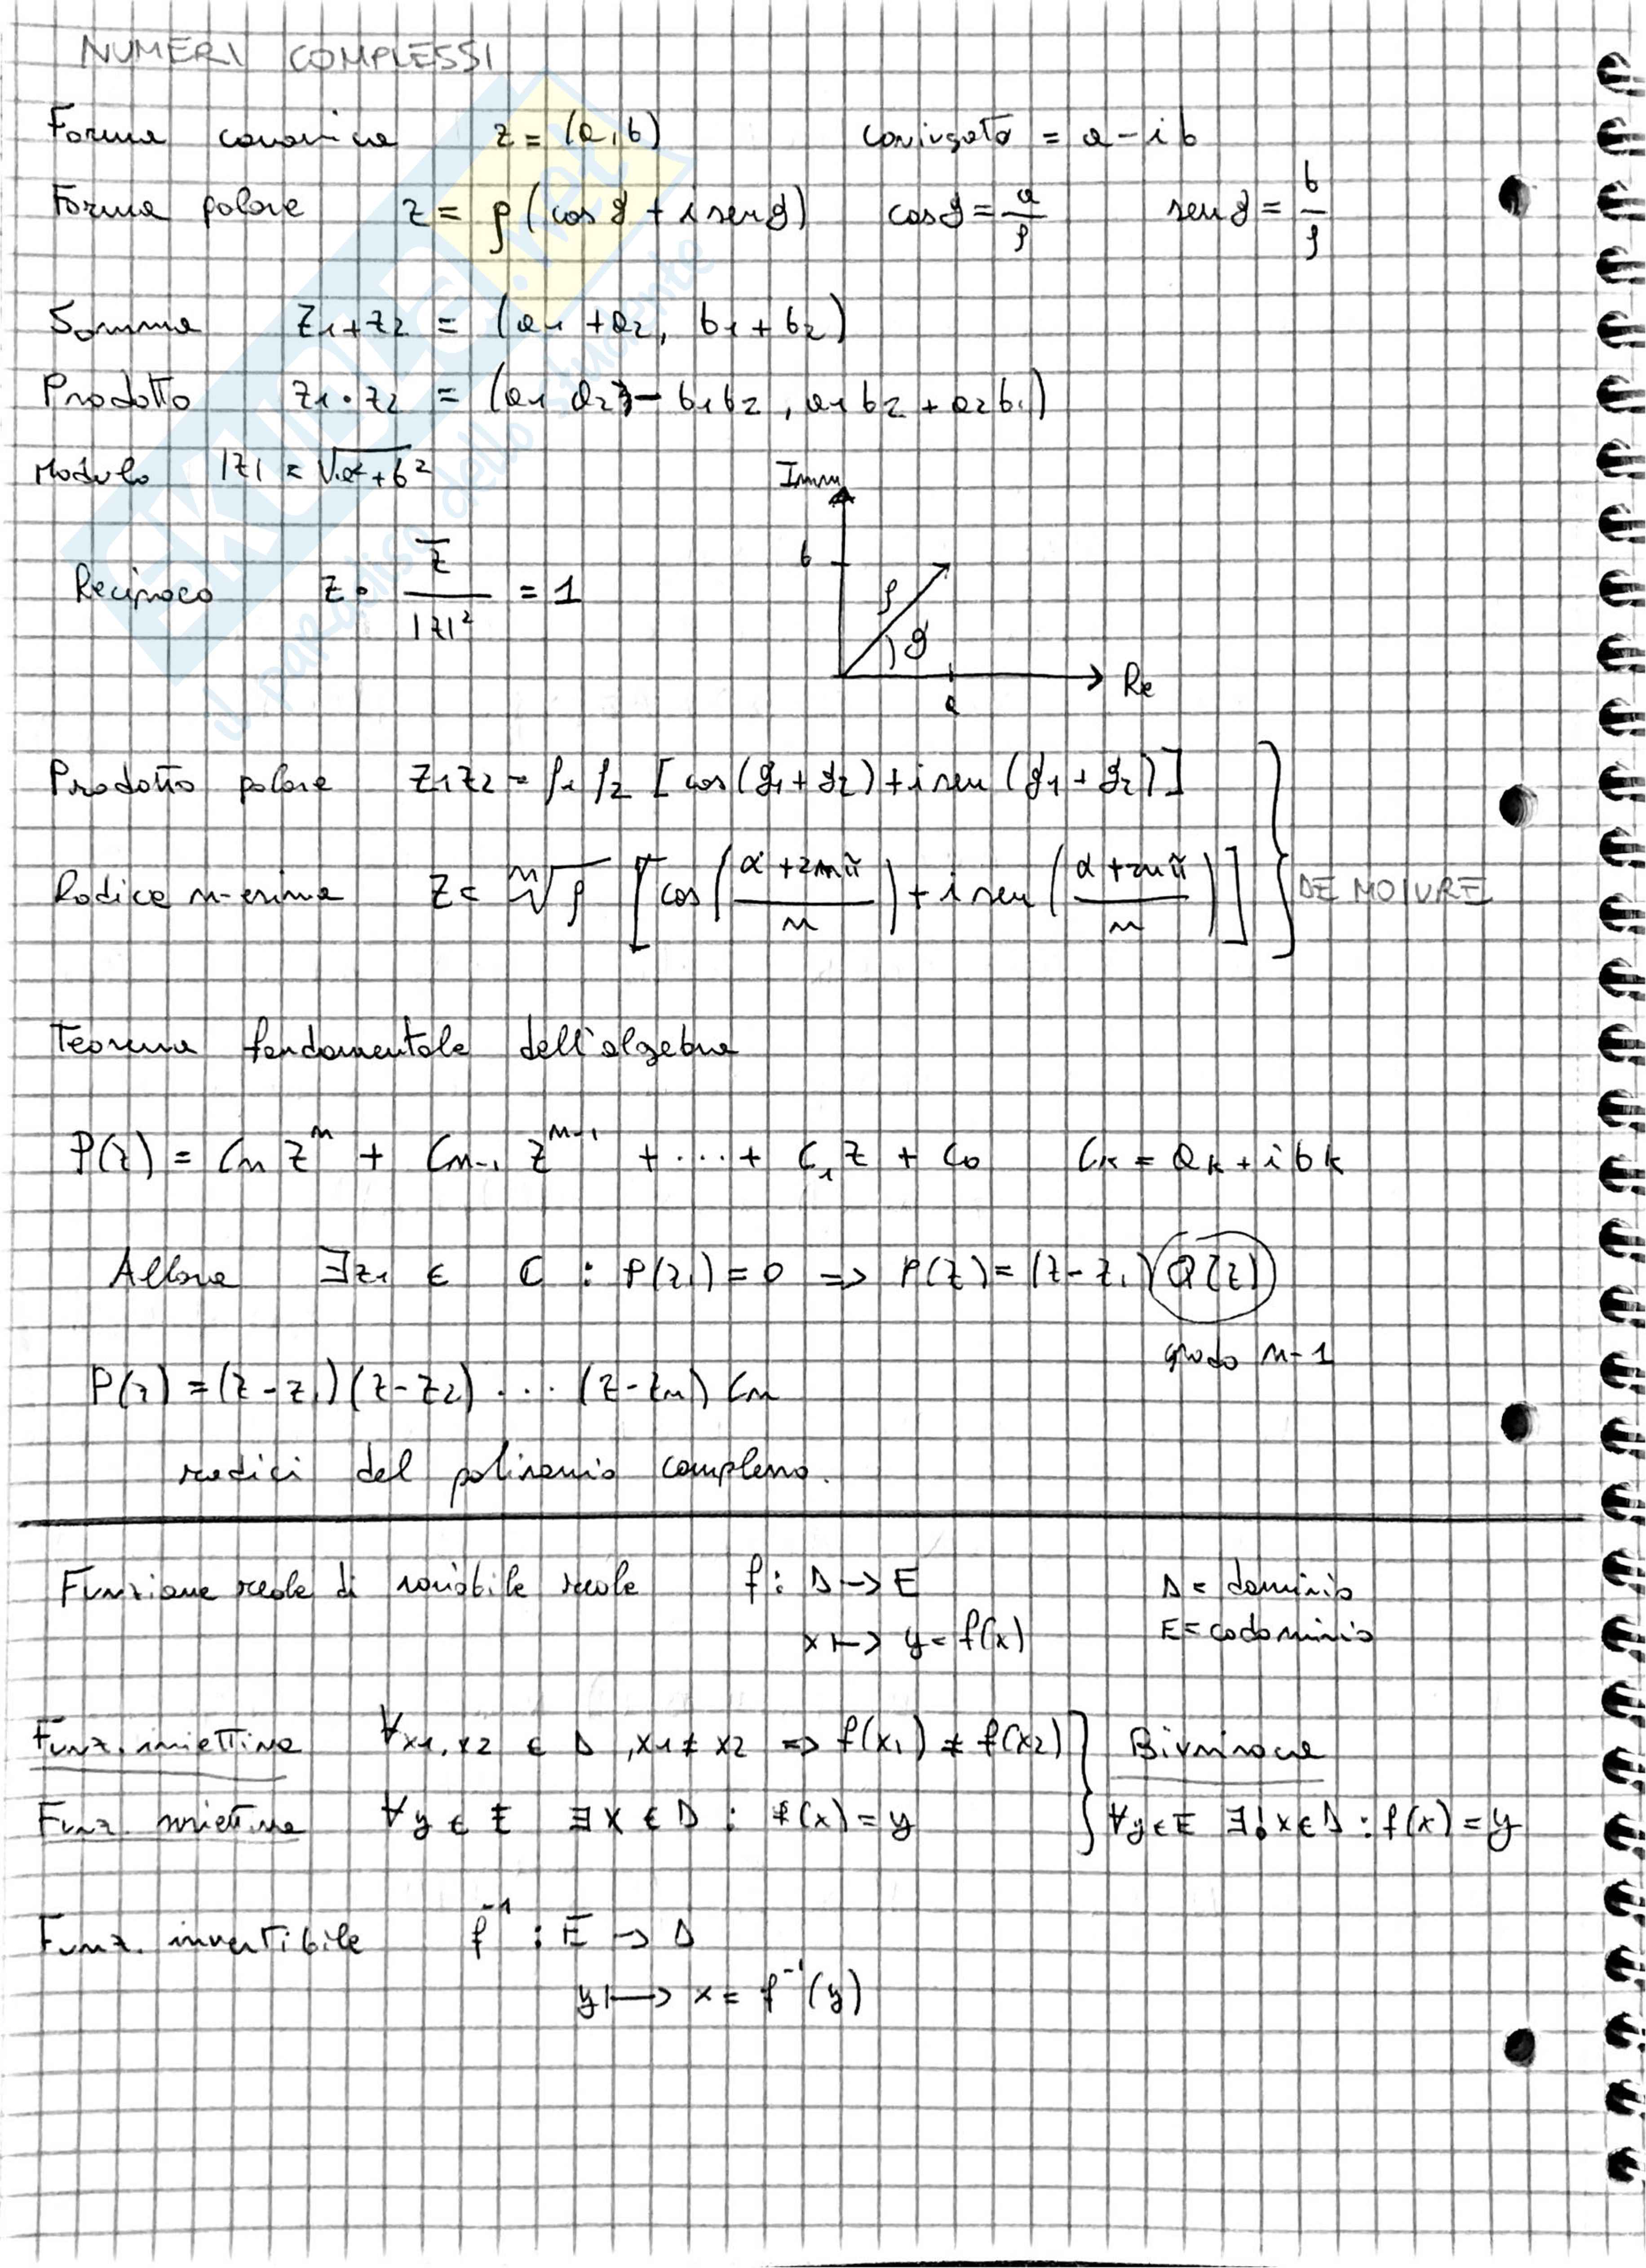 NUMERI COMPLESSI
Forma canonica z = (a, b) coniugato = a - ib
Forma polare z = ρ (cos ϑ + i sen ϑ) cos ϑ = a/ρ sen ϑ = b/ρ
Somma z1 + z2 = (a1 + a2, b1 + b2)
Prodotto z1 · z2 = (a1 a2 - b1 b2, a1 b2 + a2 b1)
Modulo |z| = √(a² + b²)
Imm
b
ρ
ϑ
Re
a
Reciproco z · z̅/|z|² = 1
Prodotto polare z1 z2 = ρ1 ρ2 [cos (ϑ1 + ϑ2) + i sen (ϑ1 + ϑ2)]
Radice n-esima z = ⁿ√ρ [cos ((α + 2nπ)/n) + i sen ((α + 2nπ)/n)] DE MOIVRE
Teorema fondamentale dell'algebra
P(z) = Cn zⁿ + Cn-1 zⁿ⁻¹ + ... + C1 z + C0 Ck = ak + i bk
Allora ∃z1 ∈ C : P(z1) = 0 => P(z) = (z - z1) Q(z)
grado n-1
P(z) = (z - z1)(z - z2) ... (z - zn) Cn
radici del polinomio complesso.
Funzione reale di variabile reale f: D -> E D = dominio
x ↦ y = f(x) E = codominio
Funz. iniettiva ∀x1, x2 ∈ D, x1 ≠ x2 => f(x1) ≠ f(x2) Biunivoca
Funz. suriettiva ∀y ∈ E ∃x ∈ D : f(x) = y ∀y ∈ E ∃! x ∈ D : f(x) = y
Funz. invertibile f⁻¹ : E -> D
y ↦ x = f⁻¹(y)
SKUOLA.net
il paradiso dello studente